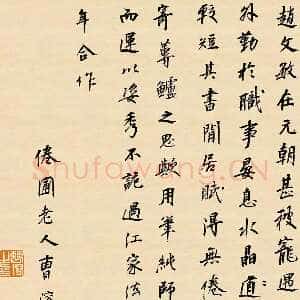 趙文敏在元朝甚被寵遇
外勤於職事晏息水晶道
較短其書閒居賦得無倦
寄蓴鱸之思歟用筆純師
而運以姿秀不詭過江家法
年合作
倦圃老人曹溶
Shufawang.CN